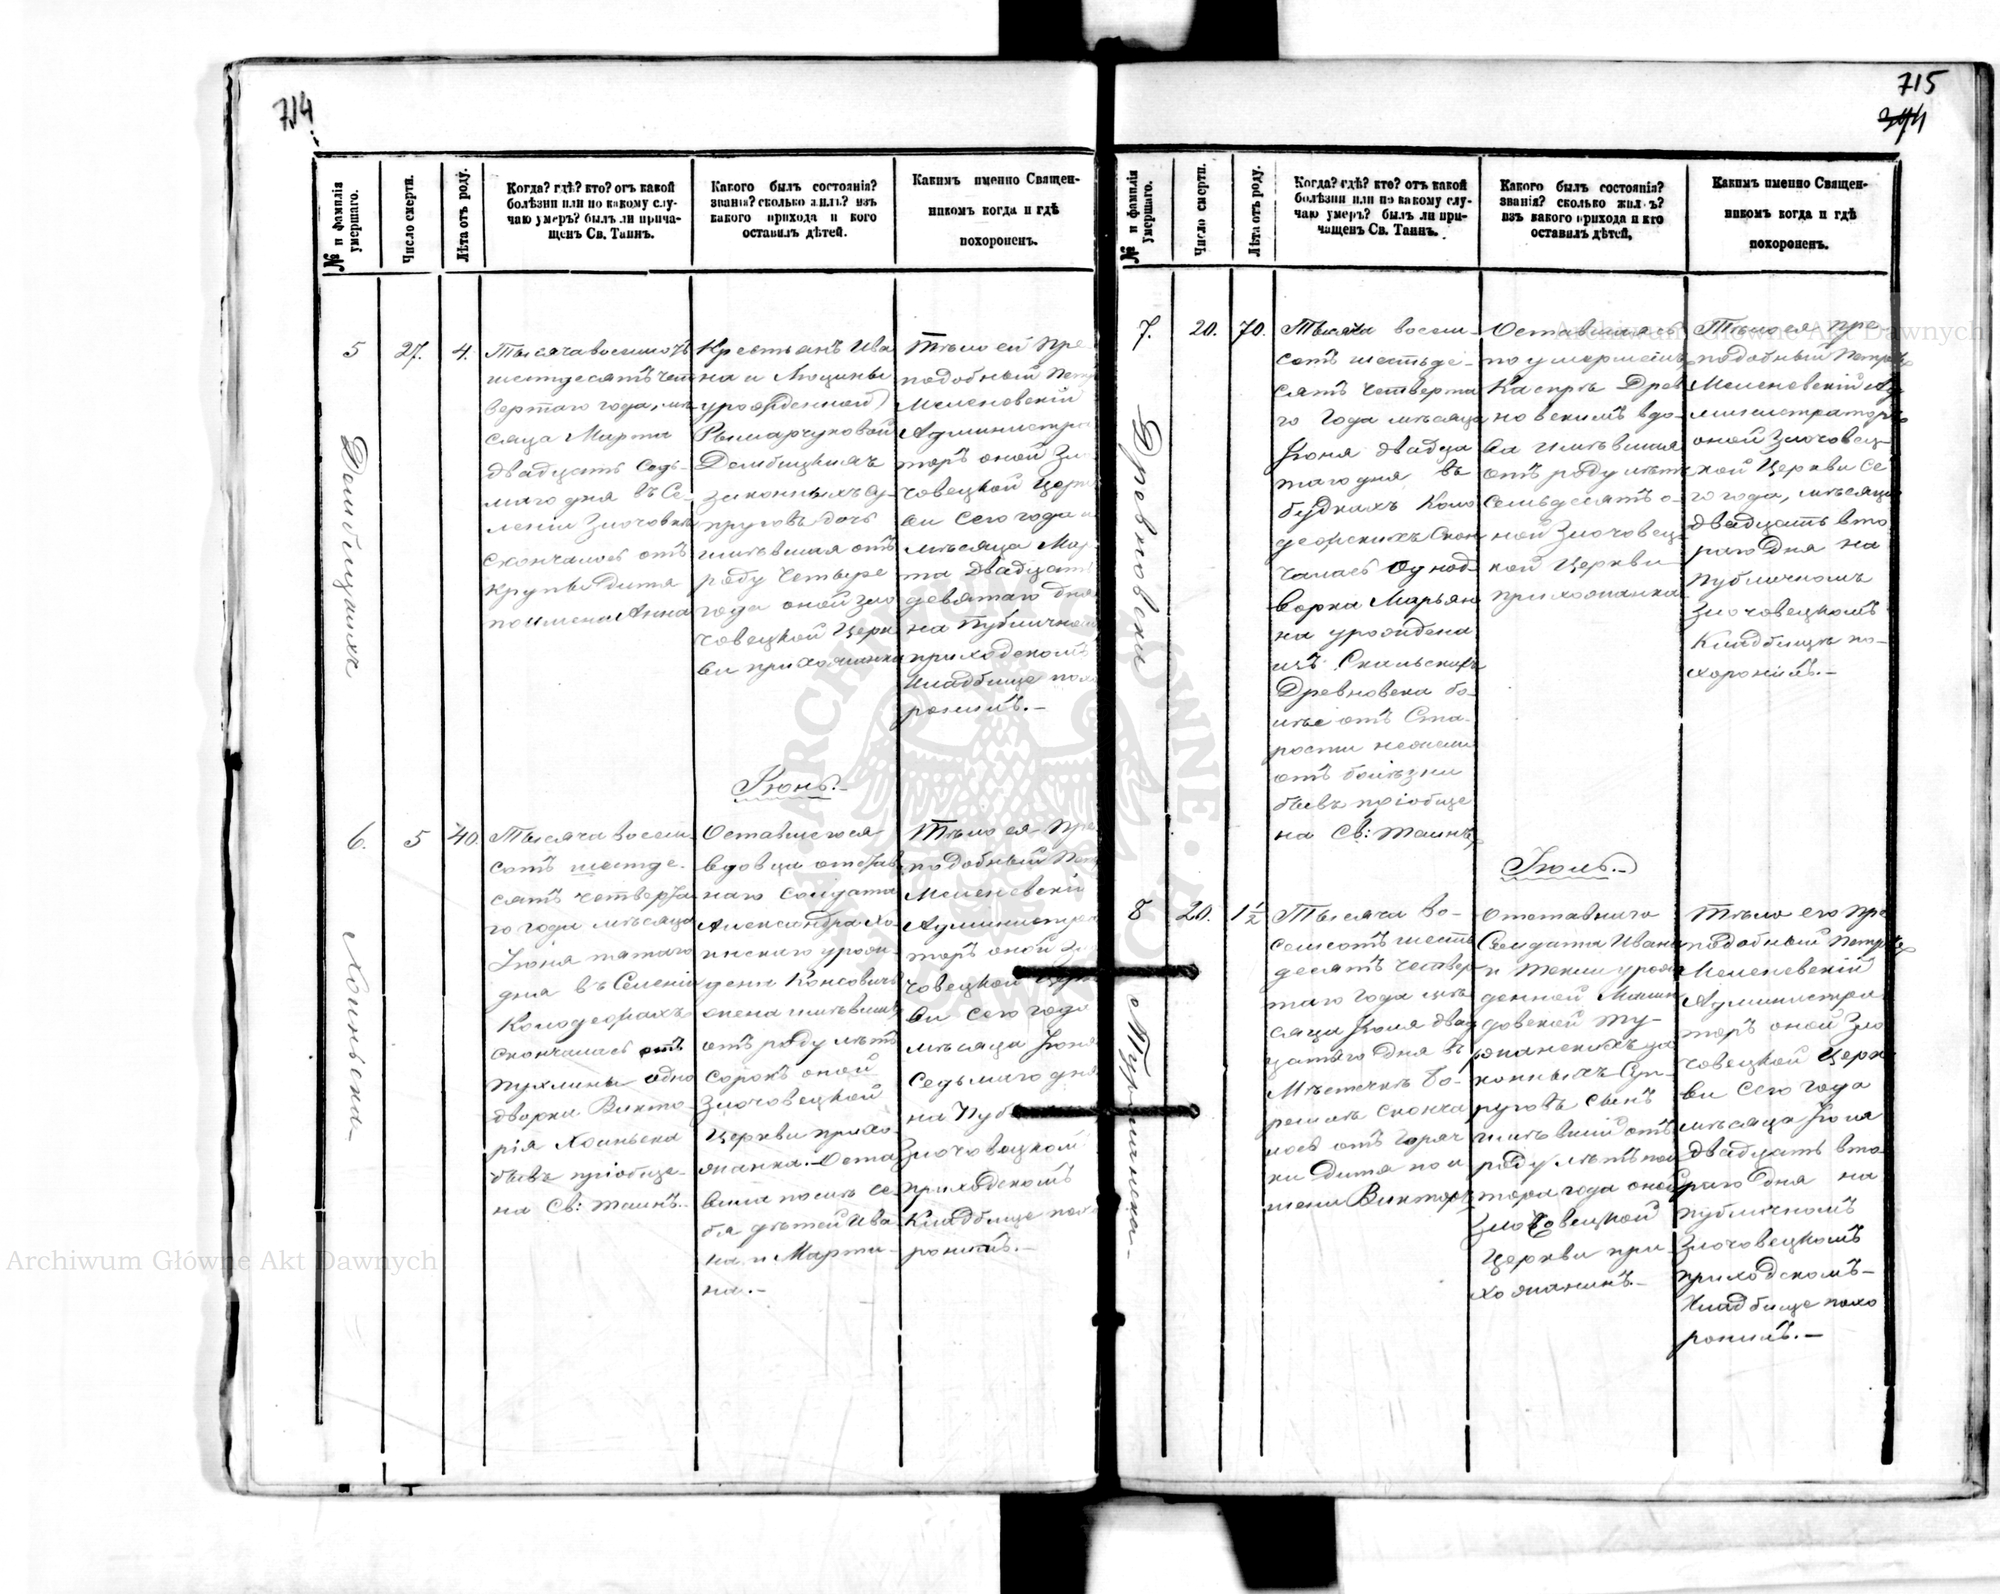 714
№ и фамилія умершаго.
Число смерти.
Лѣта отъ роду.
Когда? гдѣ? кто? отъ какой
болѣзни или по какому слу-
чаю умеръ? былъ ли прича-
щенъ Св. Таинъ.
Какого былъ состоянія?
званія? сколько жилъ? изъ
какого прихода и кого
оставилъ дѣтей.
Какимъ именно Священ-
никомъ когда и гдѣ
похороненъ.
5
Дембицкихъ
27.
4.
Тысяча восемисотъ
шестдесятъ чет
вертаго года, мѣ
сяца Марта
двадцать седь-
маго дня въ Се-
леніи Злочовка
скончалось отъ
крупы дитя
по имени Анна
Крестьянъ Ива
на и Люцины
урожденной
Рымарчуковой
Дембицкихъ
законныхъ су-
пруговъ дочь
имѣвшая отъ
роду четыре
года оной Зло
човецкой Церк
ви прихожанка
Тѣло ей Пре
подобный Петр
Мсленовскій
Администра
торъ оной Зло
човецкой Церк
ви сего года и
мѣсяца Мар-
та двадцать
девятаго дня
на Публичном
приходскомъ
Кладбище похо
ронилъ.-
Іюнь.-
6.
Хоиньска-
5
40.
Тысяча восем-
сотъ шестде-
сятъ четверта
го года мѣсяца
Іюня пятаго
дня въ Селеніи
Колодеорахъ
скончалась отъ
пухлины одно
дворка Викто-
рія Хоиньска
бывъ пріобще-
на Св: таинъ.-
Оставшегося
вдовца отстав
наго солдата
Александра Хо-
инскаго урож-
дена Консовичъ
жена имѣвшая
отъ роду лѣтъ
сорокъ оной
Злочовецкой
Церкви прихо-
жанка. Оста
вила послѣ се-
бя дѣтей Ива
на и Марти-
на.-
Тѣло ея Пре
подобный Петр
Мсленовскій
Администра
торъ оной Зло
човецкой Церк
ви сего года
мѣсяца Іюня
седьмаго дня
на Пуб
Злочовецком
приходскомъ
Кладбище похо
ронилъ.-
715
344
№ и фамилія умершаго.
Число смерти.
Лѣта отъ роду.
Когда? гдѣ? кто? отъ какой
болѣзни или по какому слу-
чаю умеръ? былъ ли при-
чащенъ Св. Таинъ.
Какого былъ состоянія?
званія? сколько жилъ?
изъ какого прихода и кто
оставилъ дѣтей.
Какимъ именно Священ-
никомъ когда и гдѣ
похороненъ.
7.
Древновска
20.
70.
Тысяча восем-
сотъ шестьде-
сятъ четверта
го Года мѣсяца
Іюня двадца
таго дня въ
будкахъ Коло
деорскихъ скон
чалась Однод-
ворка Марьян
на урождена
изъ Скальскихъ
Древновска бо-
лѣе отъ Ста-
рости нежели
отъ болѣзни
бывъ пріобще
на Св: таинъ
Оставшаяся
по умершемъ
Каспрѣ Древ
новскимъ вдо-
ва имѣвшая
отъ роду лѣтъ
семьдесятъ о-
ной Злочовец-
кой Церкви
прихожанка
Тѣло ея Пре-
подобный Петръ
Мсленовскій Ад
министраторъ
оной Злочовец-
кой Церкви се
го года, мѣсяца
двадцать вто
раго дня на
Публичномъ
Злочовецкомъ
Кладбищѣ по-
хоронилъ.-
Іюль.-
8
20.
1 1/2
Тысяча во-
семсотъ шесть
десятъ четвер
таго года мѣ
сяца Іюля двад
цатаго дня въ
Мѣстечкѣ Бо-
ремлѣ сконча
лось отъ горяч
ки дитя по и
мени Викторъ
Отставнаго
Солдата Ивана
и Теклі урож
денной
довской Ту-
жанскихъ за
конныхъ Суп-
руговъ сынъ
имѣвшій отъ
роду лѣтъ пол
тора года оной
Злочовецкой
Церкви при-
хожанинъ-
Тѣло его Пре
подобный Петръ
Мсленовскій
Администра
торъ оной Зло
човецкой Церк
ви сего года
мѣсяца Іюля
двадцать вто
раго дня на
публичномъ
Злочовецкомъ
приходскомъ-
Кладбище похо
ронилъ.-
Archiwum Główne Akt Dawnych
Archiwum Główne Akt Dawnych